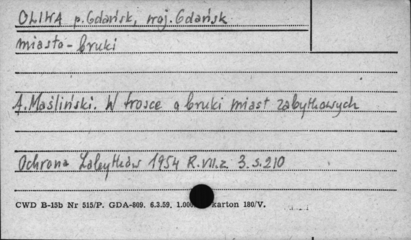 OLIWA p. Gdańsk, woj. Gdańsk
miasto - bruki
A. Maśliński. W trosce o bruki miast zabytkowych
Ochrona Zabytków 1954 R. VII. z. 3. s. 210
CWD B-15b Nr 515/P. GDA-809. 6.3.59. 1.000 karton 180/V.